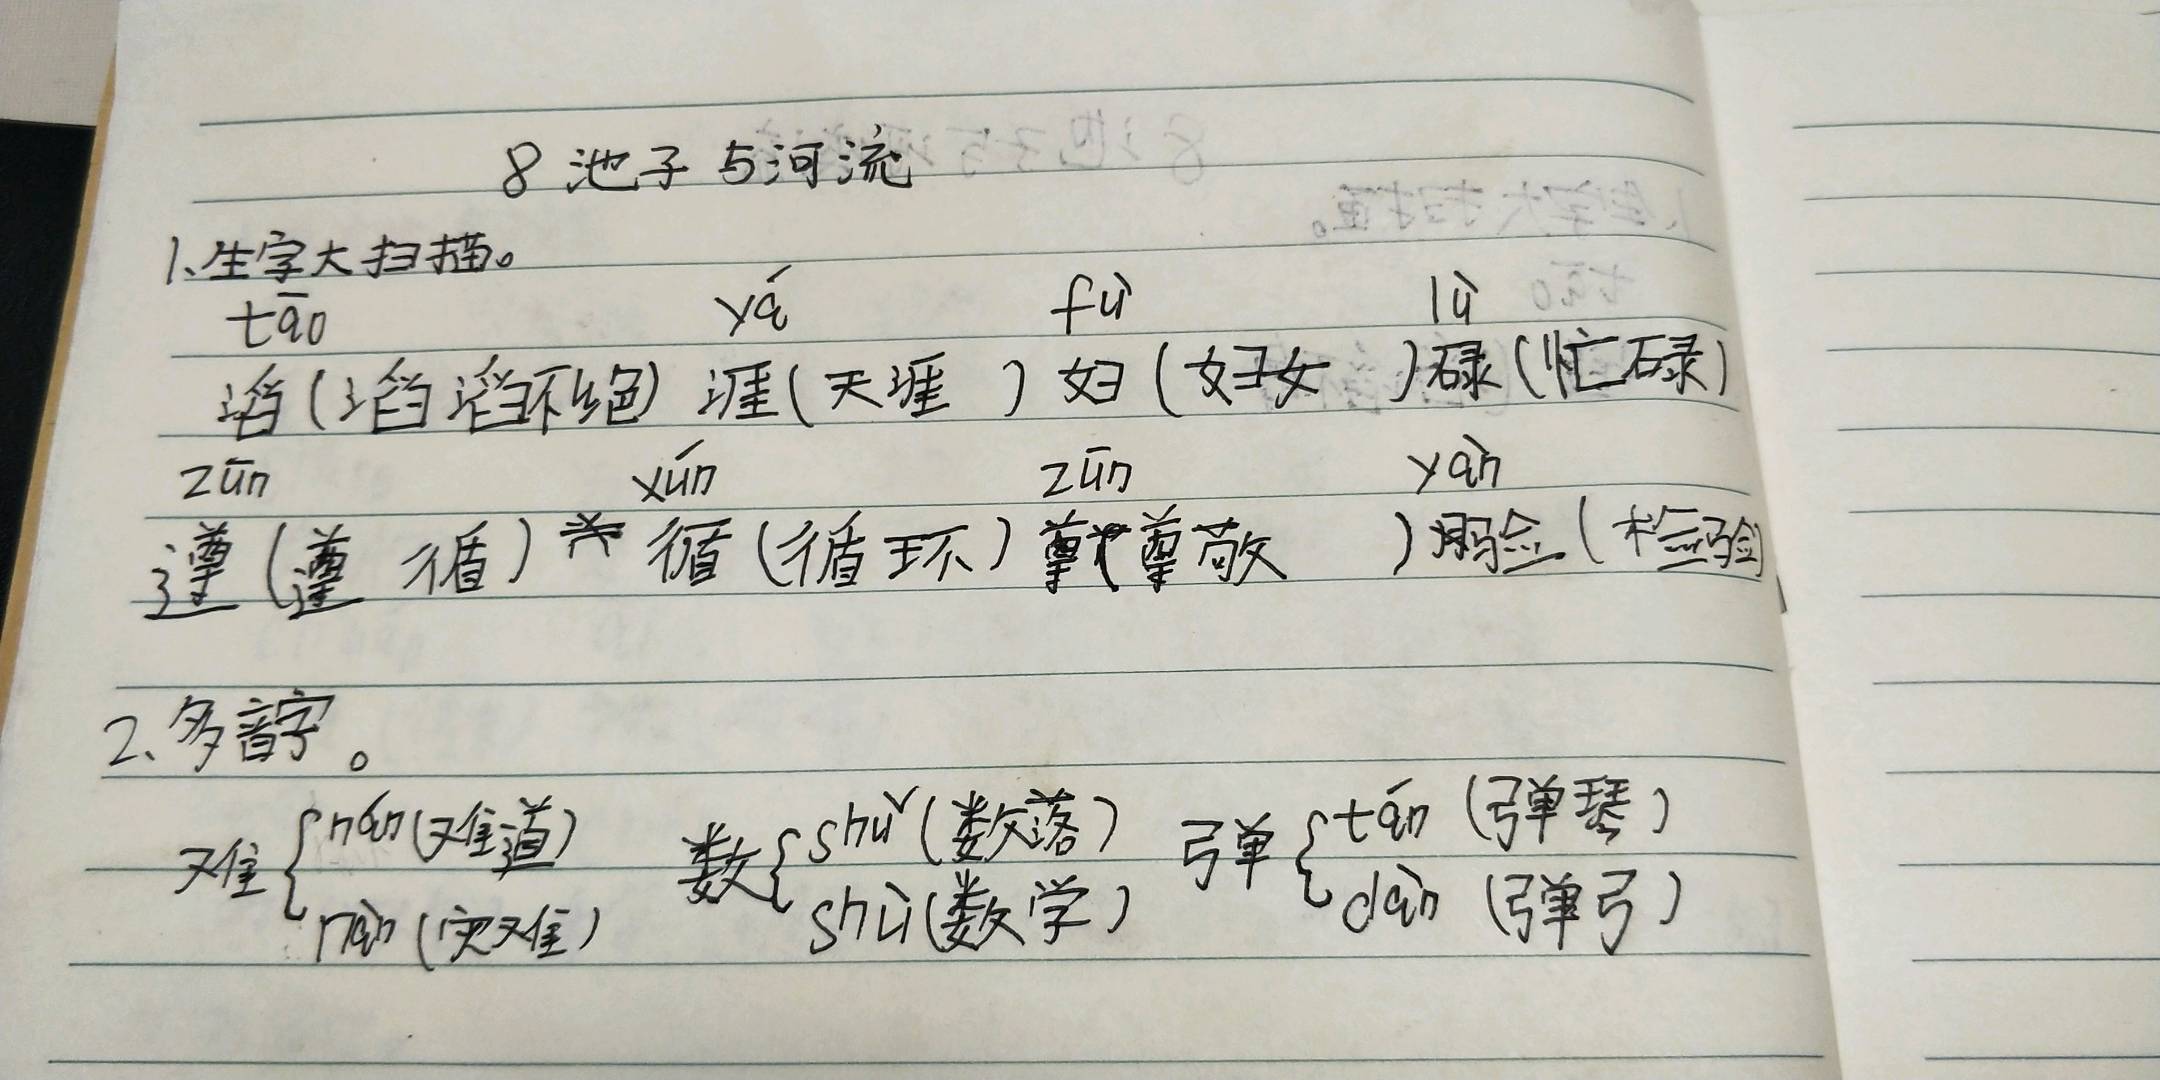 8 池子与河流
1、生字大扫描。
tāo yá fù lù
滔(滔滔不绝) 涯(天涯 ) 妇(妇女 )碌(忙碌)
zūn xún zūn yàn
遵(遵 循) 循(循环) 尊(尊敬 )验(检验)
2、多音字。
难{nán(难道) 数{shǔ(数落) 弹{tán(弹琴)
nàn(灾难) shù(数学) dàn(弹弓)